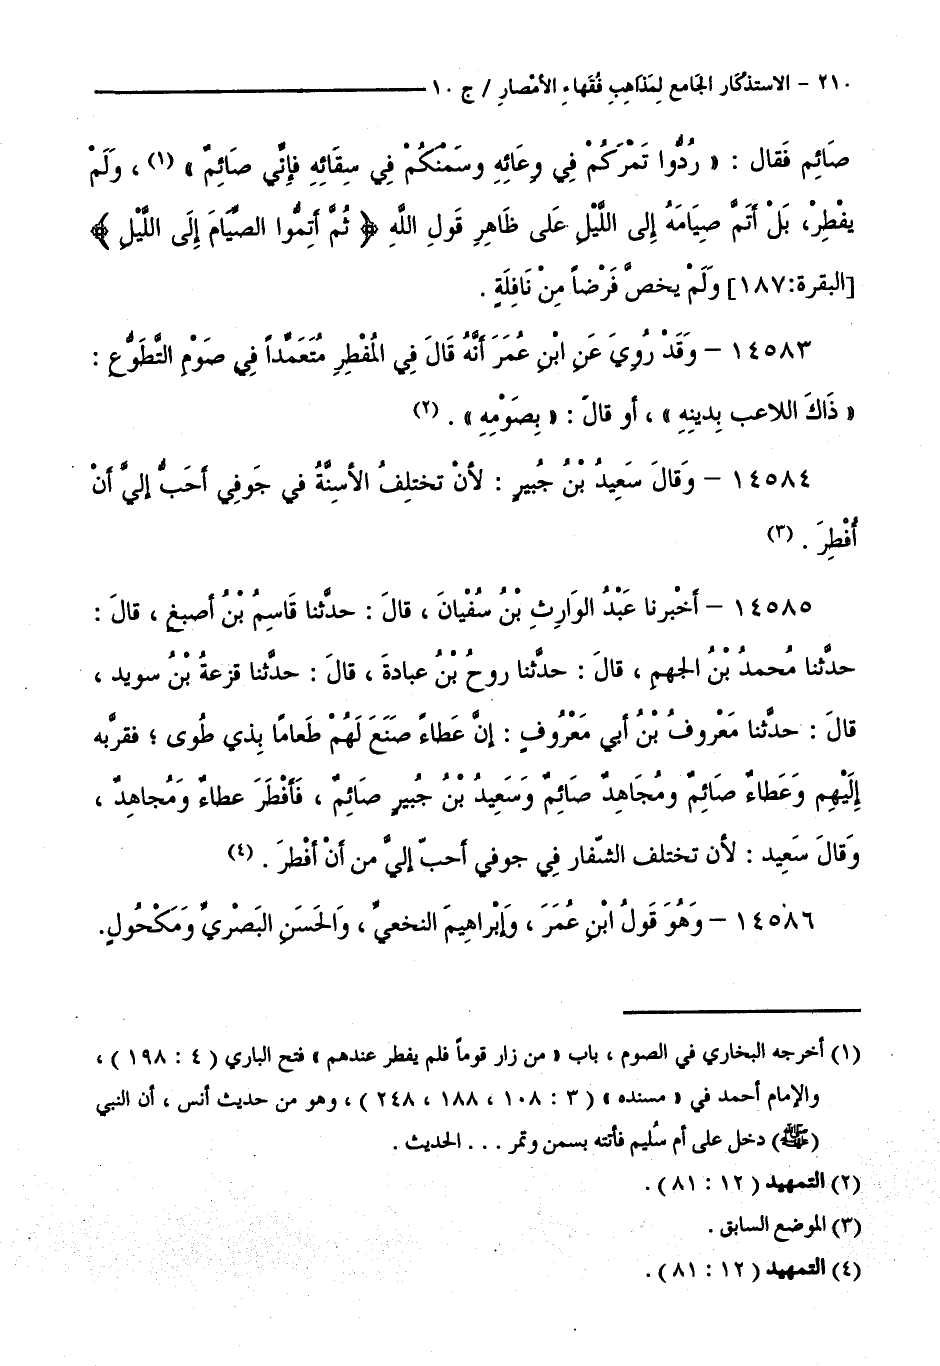 ٢١٠ - الاستذكار الجامع لِمَذاهِبِ فُقَهاءِ الأمْصارِ / ج ١٠
صَائِم فَقال : « رُدُّوا تَمْرَكُمْ فِي وِعَائِهِ وسَمْنَكُمْ فِي سِقَائِهِ فإِنِّي صَائِمٌ » (١) ، وَلَمْ
يفْطِرْ، بَلْ أَتَمَّ صِيَامَهُ إِلى اللَّيْلِ عَلى ظَاهِرِ قَولِ اللَّهِ ﴿ ثُمَّ أَتِمُّوا الصِّيَّامَ إِلَى اللَّيْلِ ﴾
[البقرة:١٨٧] وَلَمْ يخصَّ فَرْضاً مِنْ نَافِلَةٍ .
١٤٥٨٣ – وَقَدْ رُوِيَ عَنِ ابْنِ عُمَرَ أَنَّهُ قَالَ فِي المُفْطِرِ مُتَعَمِّداً فِي صَوْمِ التَّطَوُّعِ :
« ذَاكَ اللاعب بِدينِهِ » ، أو قالَ : « بِصَوْمِهِ » . (٢)
١٤٥٨٤ – وَقالَ سَعِيدُ بْنُ جُبيرٍ : لأنْ تختلِفُ الأسِنَّةُ في جَوفِي أحَبُّ إليَّ أنْ
أُفْطِرَ . (٣)
١٤٥٨٥ – أَخْبرنا عَبْدُ الوَارِثِ بْنُ سُفْيانَ ، قالَ : حدَّثنا قَاسِمُ بْنُ أصبغ ، قالَ :
حدَّثنا مُحمدُ بْنُ الجهمِ ، قالَ : حدَّثنا روحُ بْنُ عبادةَ ، قالَ : حدَّثنا قزعةُ بْنُ سويد ،
قالَ : حدَّثنا مَعْروفُ بْنُ أبي مَعْروُفٍ : إنَّ عَطاءً صَنَعَ لَهُمْ طَعامًا بِذي طُوى ؛ فقربَّه
إِلَيْهِم وَعَطَاءٌ صَائِمٌ ومُجَاهِدٌ صَائِمٌ وَسَعِيدُ بْنُ جُبيرٍ صَائِمٌ ، فَأَفْطَرَ عطاءٌ وَمُجاهِدٌ ،
وَقالَ سَعِيد : لأن تختلف الشّفار فِي جوفي أحبّ إليَّ من أنْ أفْطرَ . (٤)
١٤٥٨٦ – وَهُوَ قَولُ ابْنِ عُمَرَ ، وَإِبْراهِيمَ النخعيِّ ، وَالحَسَنِ البَصْرِيِّ وَمَكْحُولٍ.
(١) أخرجه البخاري في الصوم ، باب « من زار قوماً فلم يفطر عندهم » فتح الباري ( ٤ : ١٩٨ ) ،
والإمام أحمد في « مسنده » ( ٣ : ١٠٨ ، ١٨٨ ، ٢٤٨ ) ، وهو من حديث أنس ، أن النبي
(ﷺ) دخل على أم سُليم فأتته بسمن وتمر . . . الحديث .
(٢) التمهيد ( ١٢ : ٨١ ) .
(٣) الموضع السابق .
(٤) التمهيد ( ١٢ : ٨١ ) .